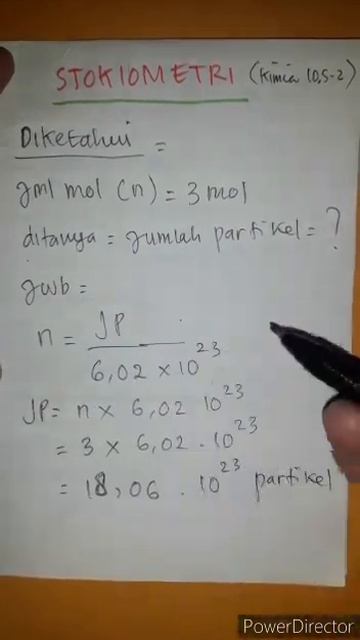 STOKIOMETRI (Kimia 10,S-2)
Diketahui =
Jml mol (n) = 3 mol
ditanya = Jumlah partikel = ?
Jwb =
n = JP / 6,02 × 10²³
JP = n × 6,02 10²³
= 3 × 6,02 . 10²³
= 18,06 . 10²³ partikel
PowerDirector